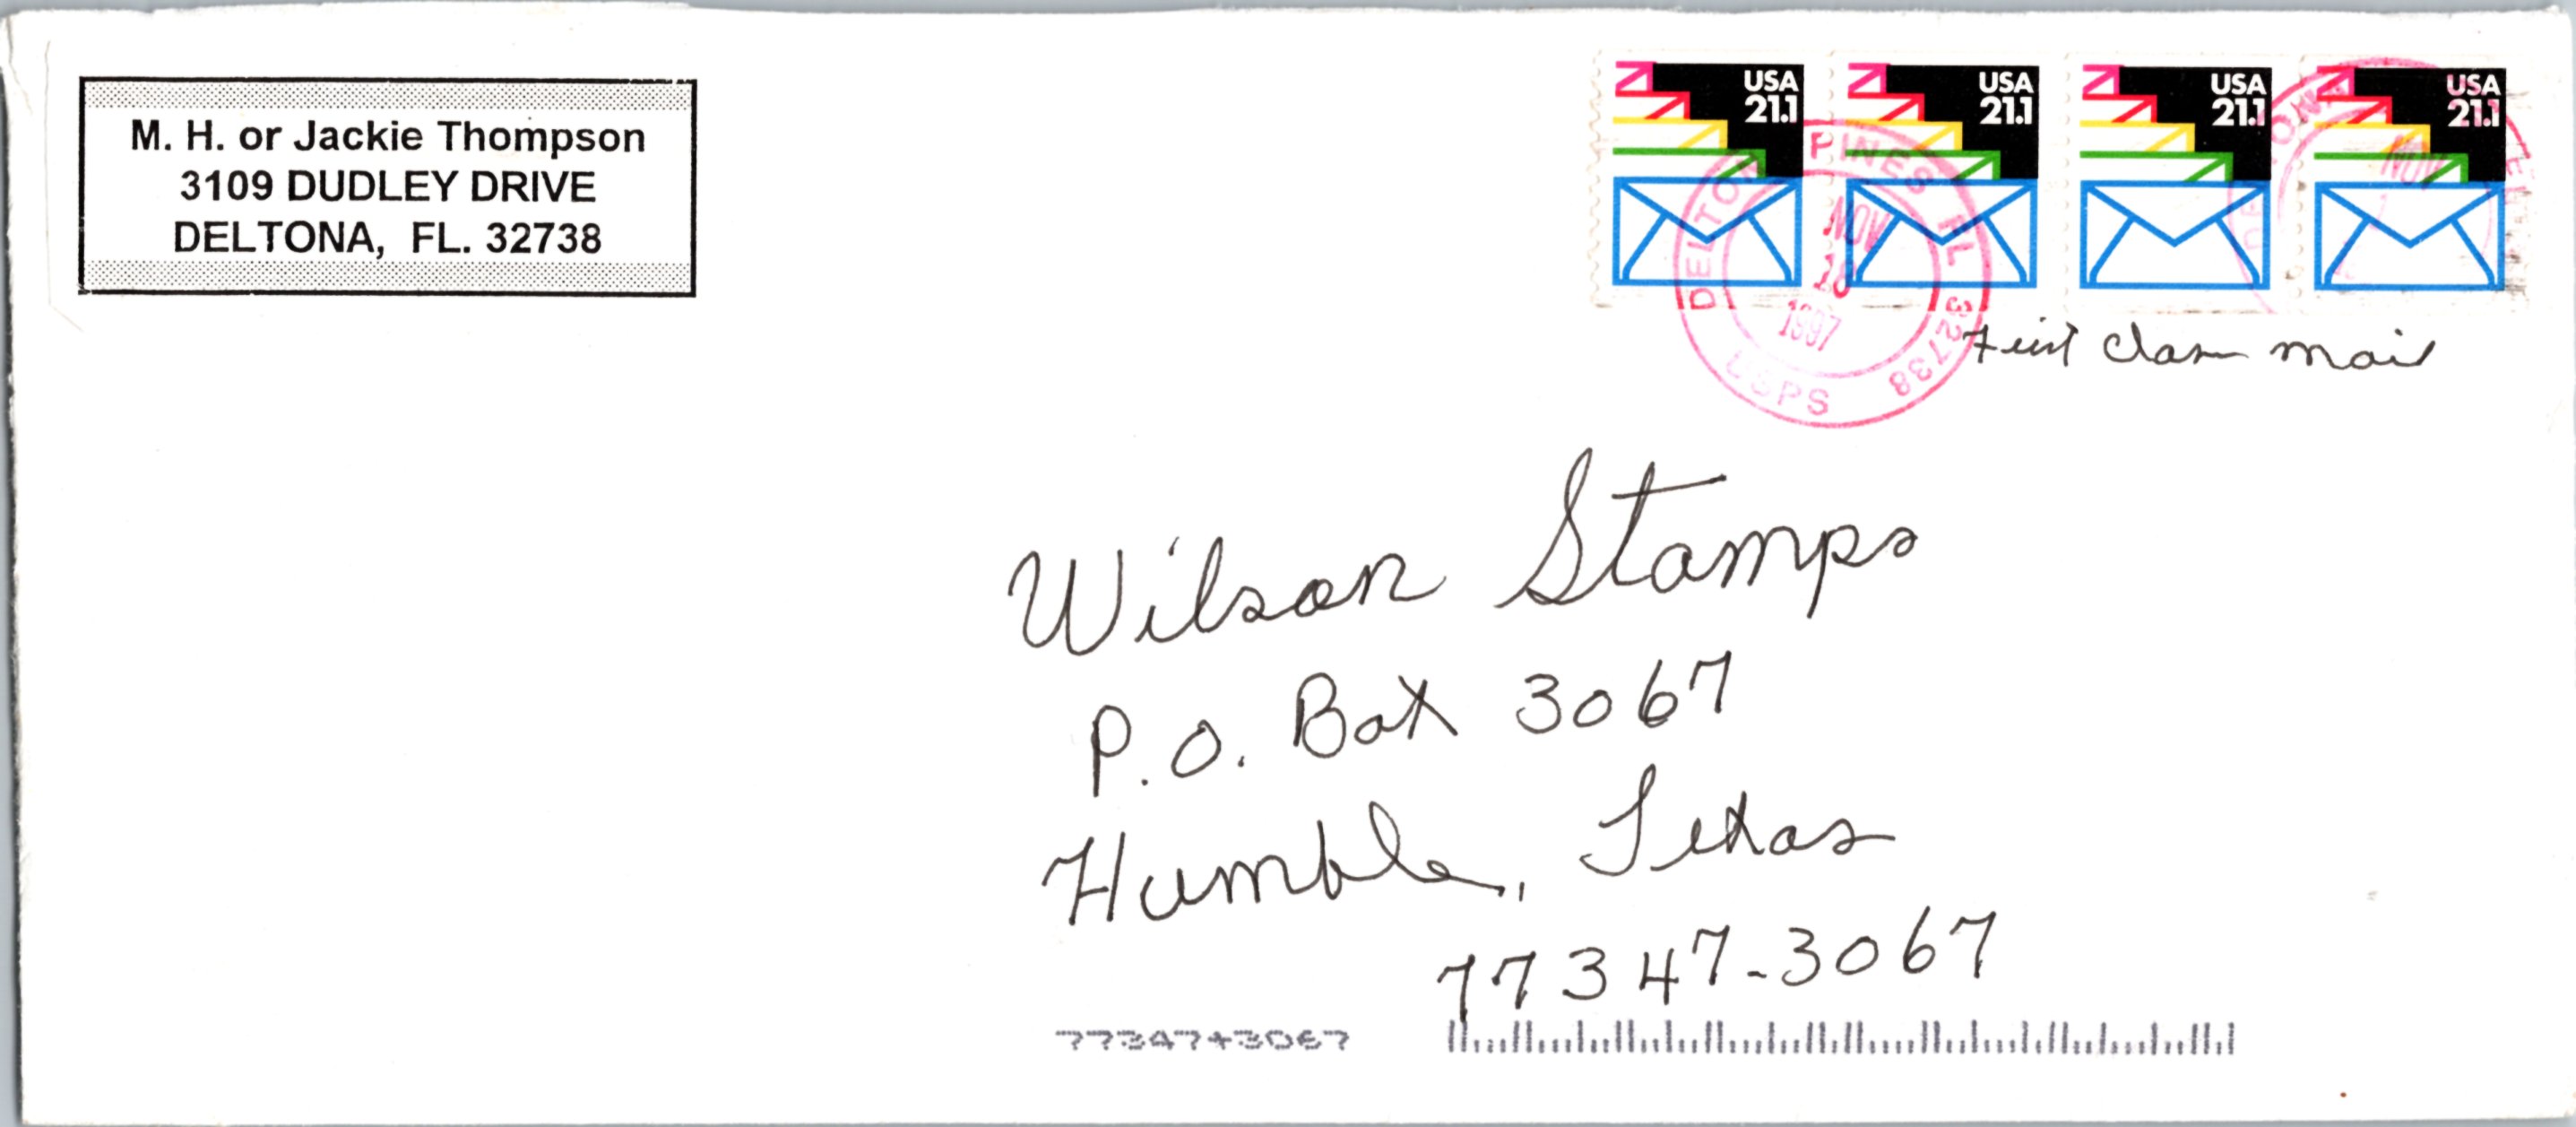 M. H. or Jackie Thompson
3109 DUDLEY DRIVE
DELTONA, FL. 32738
USA
21.1
USA
21.1
USA
21.1
USA
21.1
DELTONA PINES FL 32738
NOV
18
1997
USPS
NOV
First Class Mail
Wilson Stamps
P.O. Box 3067
Humble, Texas
77347-3067
77347+3067